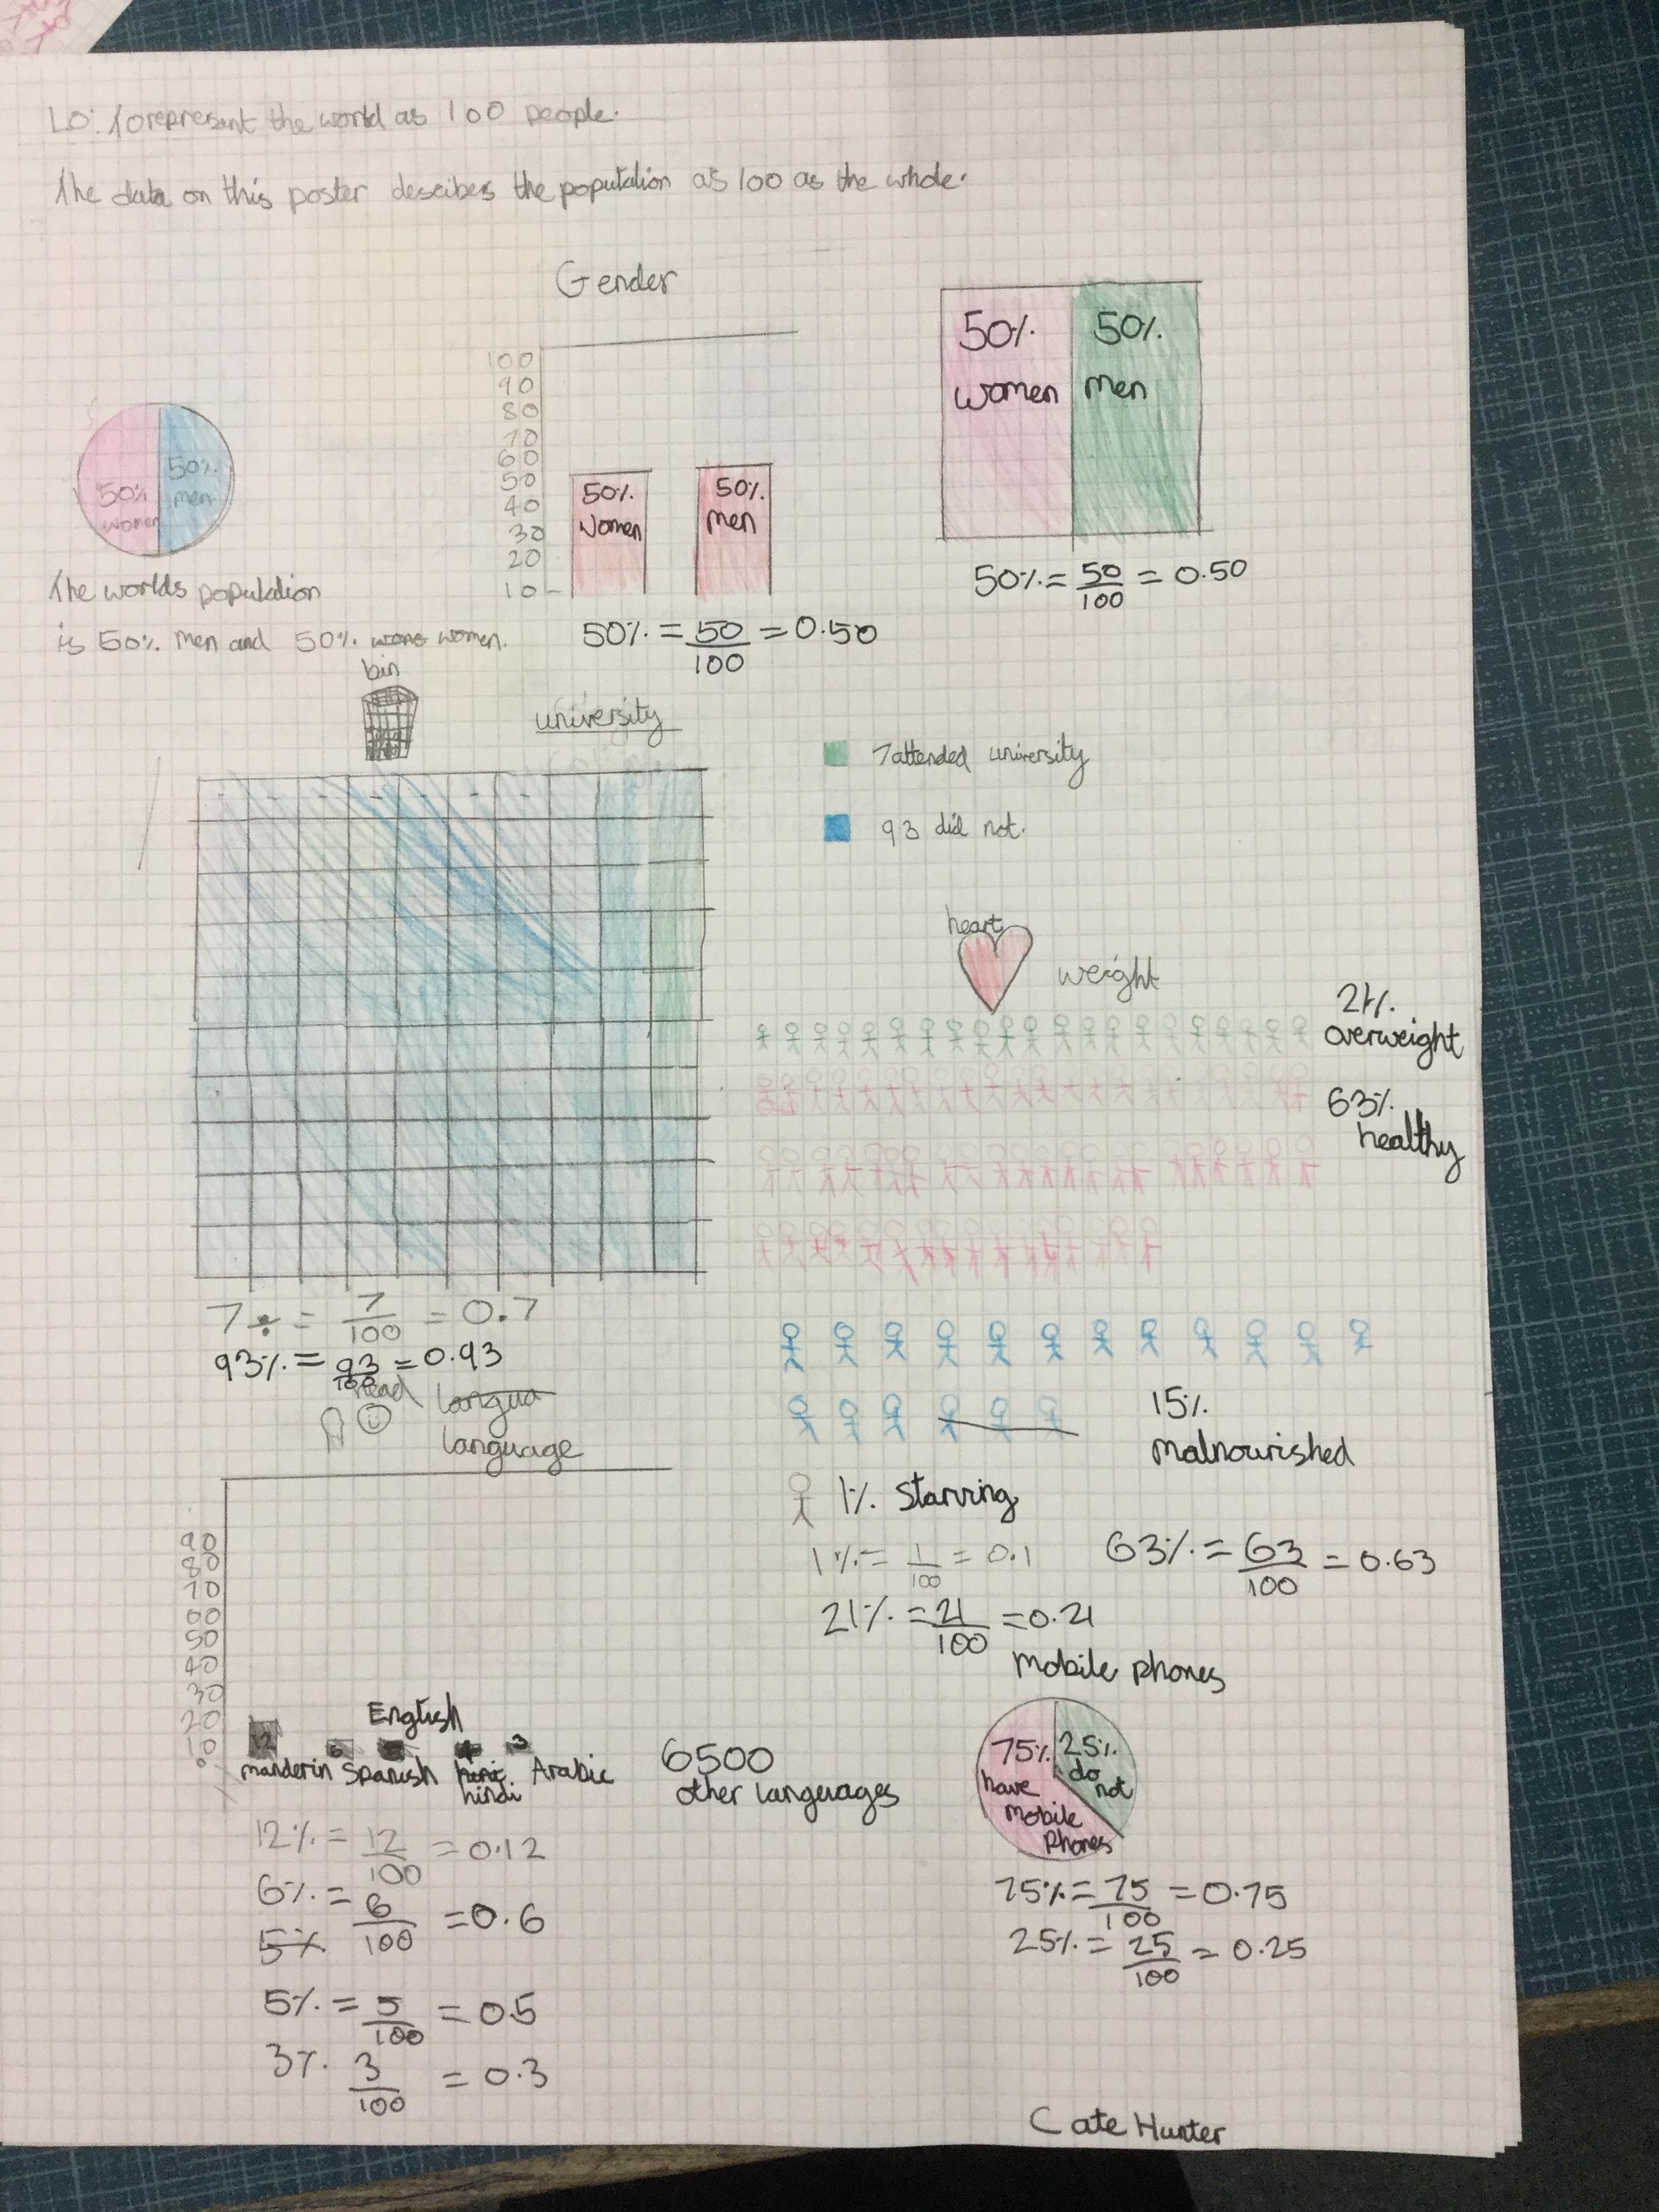 LO: To represent the world as 100 people.
The data on this poster descibes the population as 100 as the whole.
Gender
100
90
80
70
60
50
40
30
20
10
50% Women
50% men
50% = 50/100 = 0.50
50% women
50% men
50% = 50/100 = 0.50
50% women
50% men
The worlds population
is 50% men and 50% women.
bin
university
7 attended university
93 did not.
7 ÷ = 7/100 = 0.7
93% = 93/100 = 0.93
heart
weight
21% overweight
63% healthy
15% malnourished
1% Starving
1% = 1/100 = 0.1
63% = 63/100 = 0.63
21% = 21/100 = 0.21
head
langua
language
90
80
70
60
50
40
30
20
10
0
12
6
English
4
3
manderin
Spanish
hindi
Arabic
6500
other languages
12% = 12/100 = 0.12
6% = 6/100 = 0.6
5%
5% = 5/100 = 0.5
3% 3/100 = 0.3
Mobile phones
75% have mobile phones
25% do not
75% = 75/100 = 0.75
25% = 25/100 = 0.25
Cate Hunter